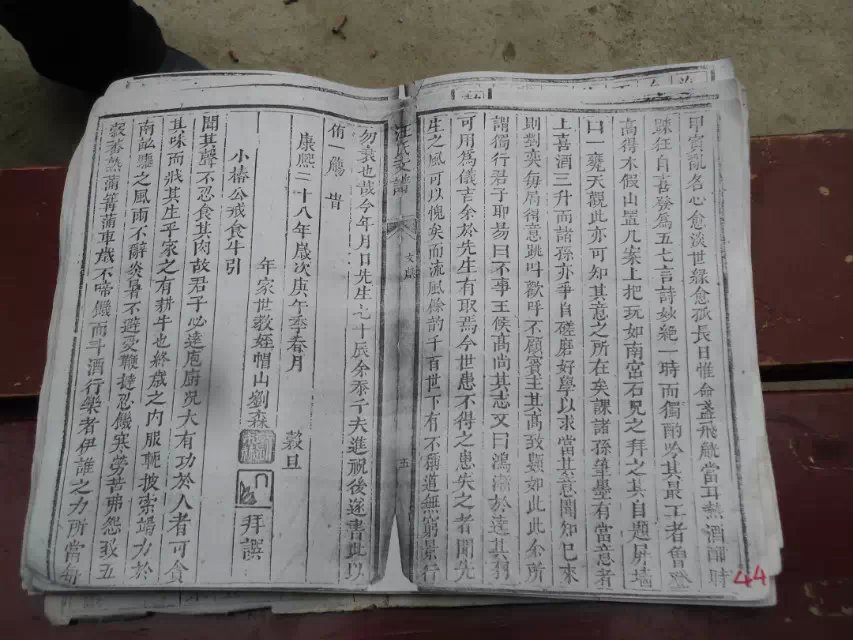 甲寅亂名心愈淡世緣愈孤長日惟命盞飛觥當耳熱酒酣時
踈狂自喜發為五七言詩妙絕一時而獨酌吟其最工者魯登
高得木假山置几案上把玩如南宮石兄之拜之其自題屏墻
曰一甕天觀此亦可知其意之所在矣課諸孫筆墨有當意者
上喜酒三升而諸孫亦爭自磋磨好學以求當其意閒知己來
則對奕每局得意跳叫歡呼不顧賓主其髙致類如此此余所
謂獨行君子耶易曰不事王侯髙尚其志又曰鴻漸於逵其羽
可用爲儀吉余於先生有取焉今世患不得之患失之者聞先
生之風可以愧矣而流風餘韵千百世下有不稱道無窮景行
汪氏支譜
文
五
勿衰也哉今年月日先生七十辰余忝千夫進祝後遂書此以
侑一觴 旹
康熙二十八年歳次庚午季春月 穀旦
年家世教姪帽山劉森 拜譔
小樁公戒食牛引
聞其聲不忍食其肉故君子必遠庖廚况大有功於人者可貪
其味而戕其生乎家之有耕牛也終歳之内服軛披索竭力於
南畝隴之風雨不辭炎暑不避受鞭撻忍饑寒勞苦弗怨致五
穀黍熟滿篝滿車哉不啼饑而斗酒行樂者伊誰之力所當每
44